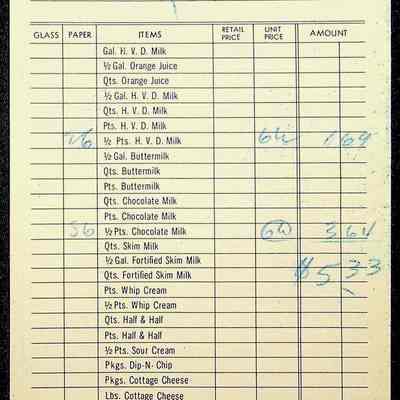 GLASS PAPER ITEMS RETAIL PRICE UNIT PRICE AMOUNT
Gal. H. V. D. Milk
½ Gal. Orange Juice
Qts. Orange Juice
½ Gal. H. V. D. Milk
Qts. H. V. D. Milk
Pts. H. V. D. Milk
26 ½ Pts. H. V. D. Milk 6½ 1 69
½ Gal. Buttermilk
Qts. Buttermilk
Pts. Buttermilk
Qts. Chocolate Milk
Pts. Chocolate Milk
56 ½ Pts. Chocolate Milk 6½ 3 64
Qts. Skim Milk
½ Gal. Fortified Skim Milk
Qts. Fortified Skim Milk $5 33
Pts. Whip Cream
½ Pts. Whip Cream
Qts. Half & Half
Pts. Half & Half
½ Pts. Sour Cream
Pkgs. Dip-N- Chip
Pkgs. Cottage Cheese
Lbs. Cottage Cheese